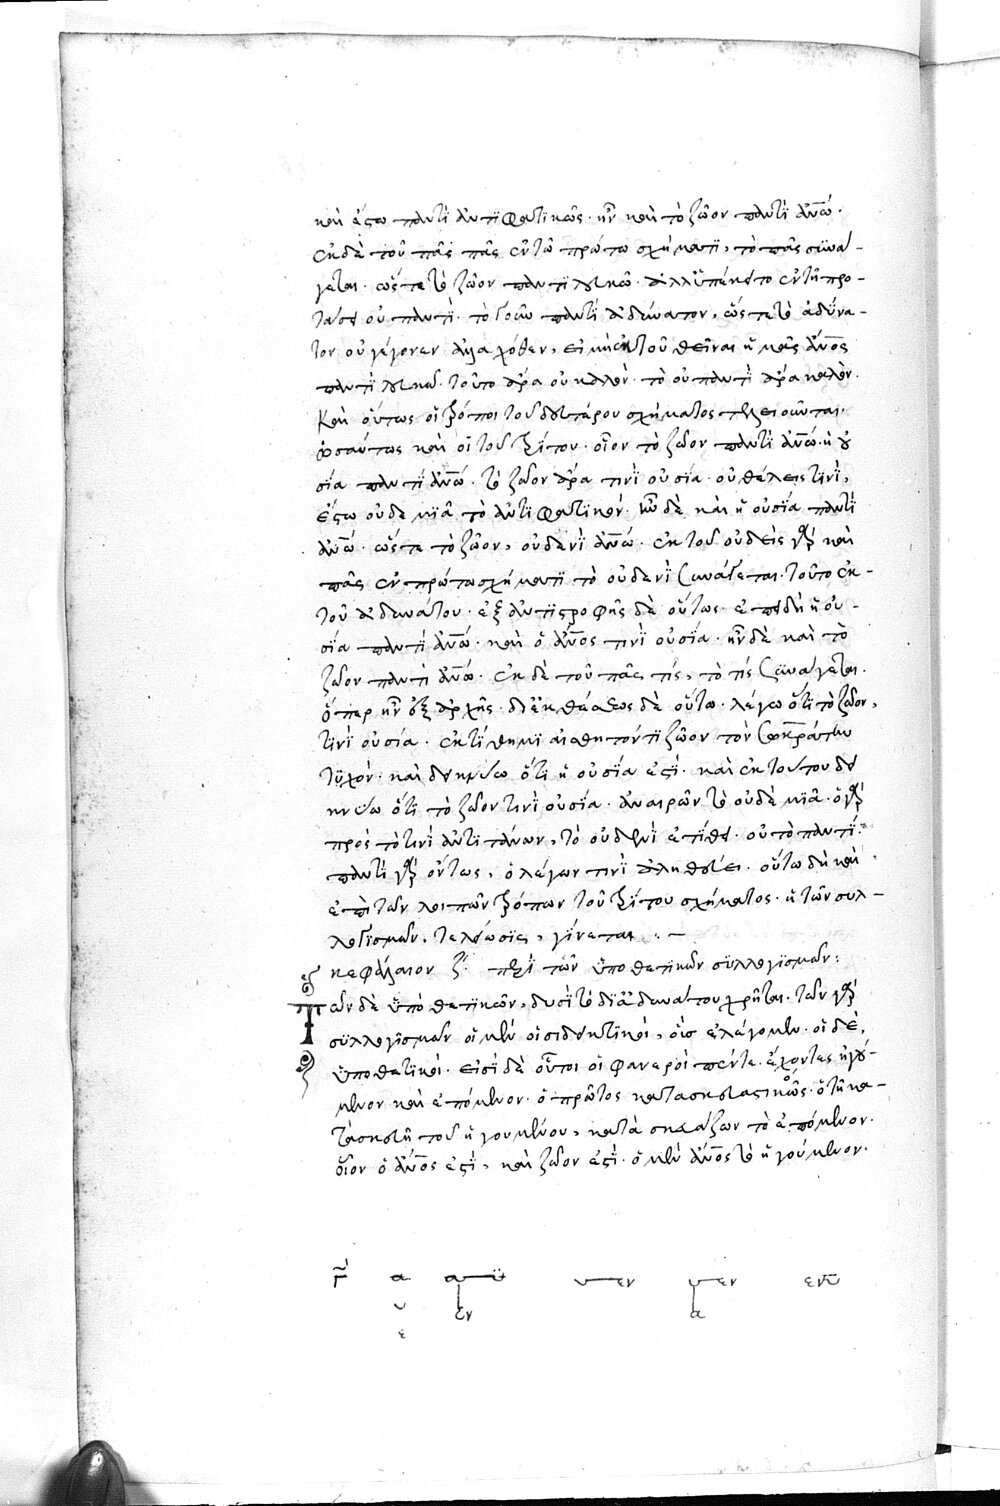 καὶ ἔστω παντὶ ἀντιφατικῶς. ἦν καὶ τὸ ζῶον παντὶ ἀνω.
ἐκ δὲ τοῦ πᾶς πᾶς ἐν τῶ πρώτω σχήματι, τὸ πᾶς συνά-
γεται. ὥστε τὸ ζῶον παντὶ λευκῶ. ἀλλ' ὑπέκειτο ἐν τῆ προ-
τάσει οὐ παντί. τὸ γοῦν παντί ἀδύνατον, ὥστε τὸ ἀδύνα-
τον οὐ γέγονεν ἀλλαχόθεν, εἰ μὴ ἐκ τοῦ θεῖναι ἡ πᾶς ἄνος
παντὶ λευκῶ. τοῦτο ἄρα οὐ καλόν. τὸ οὐ παντὶ ἄρα καλόν.
Καὶ οὕτως οἱ τρόποι τοῦ δευτέρου σχήματος τελειοῦνται.
ὡσαύτως καὶ οἱ τοῦ τρίτου. οἷον τὸ ζῶον παντὶ ἀνω. ἡ οὐ
σία παντὶ ἀνω. τὸ ζῶον ἄρα τινὶ οὐσία. οὐ θέλεις τινὶ,
ἔστω οὐδεμιᾶ τὸ ἀντιφατικόν. ἦν δὲ καὶ ἡ οὐσία παντὶ
ἀνω. ὥστε τὸ ζῶον, οὐδενὶ ἀνω. ἐκ τοῦ οὐδεὶς γὰρ καὶ
πᾶς ἐν πρώτω σχήματι τὸ οὐδενὶ συνάγεται. τοῦτο ἐκ
τοῦ ἀδυνάτου. ἐξ ἀντιστροφῆς δὲ οὕτως. ἐπειδὴ ἡ οὐ-
σία παντὶ ἀνω. καὶ ὁ ἄνος τινὶ οὐσία. ἦν δὲ καὶ τὸ
ζῶον παντὶ ἀνω. ἐκ δὲ τοῦ πᾶς τίς, τὸ τίς συνάγεται.
ὅπερ ἦν ἐξ ἀρχῆς. δι' ἐκθέσεως δὲ οὕτω. λέγω ὅτι τὸ ζῶον,
τινὶ οὐσία. ἐκτίθημι αἰσθητόν τι ζῶον τὸν Σωκράτην
τυχόν. καὶ δεικνύω ὅτι ἡ οὐσία ἐστί. καὶ ἐκ τούτου δει
κνύω ὅτι τὸ ζῶον τινὶ οὐσία. ἀναιρῶν τὸ οὐδεμιᾶ. ὁ γὰρ
πρὸς τὸ τινὶ ἀντιπίπτων, τὸ οὐδενὶ ἐτίθει. οὐ τὸ παντί.
παντὶ γὰρ ὄντως, ὁ λέγων τινὶ ἀληθεύει. οὕτω δὴ καὶ
ἐπὶ τῶν λοιπῶν τρόπων τοῦ τρίτου σχήματος. ἡ τῶν συλ-
λογισμῶν, τελείωσις, γίνεται .-
κεφάλαιον ζ. περὶ τῶν ὑποθετικῶν συλλογισμῶν:
Τῶν δὲ ὑποθετικῶν, δυσὶ τὸ δι' ἀδυνάτου χρῆται. τῶν γὰρ
συλλογισμῶν οἱ μὲν οἱ δεικτικοί, οἷς ἐλέγομεν. οἱ δέ,
ὑποθετικοί. εἰσὶ δὲ οὗτοι οἱ φανεροὶ πέντε. ἔχοντες ἡγού-
μενον καὶ ἑπόμενον. ὁ πρῶτος κατασκευαστικῶς. ὁ τῆ κα-
τασκευῆ τοῦ ἡγουμένου, κατασκευάζων τὸ ἑπόμενον.
οἷον ὁ ἄνος ἐστί, καὶ ζῶον ἐστί. ὁ μὲν ἄνος τὸ ἡγούμενον.